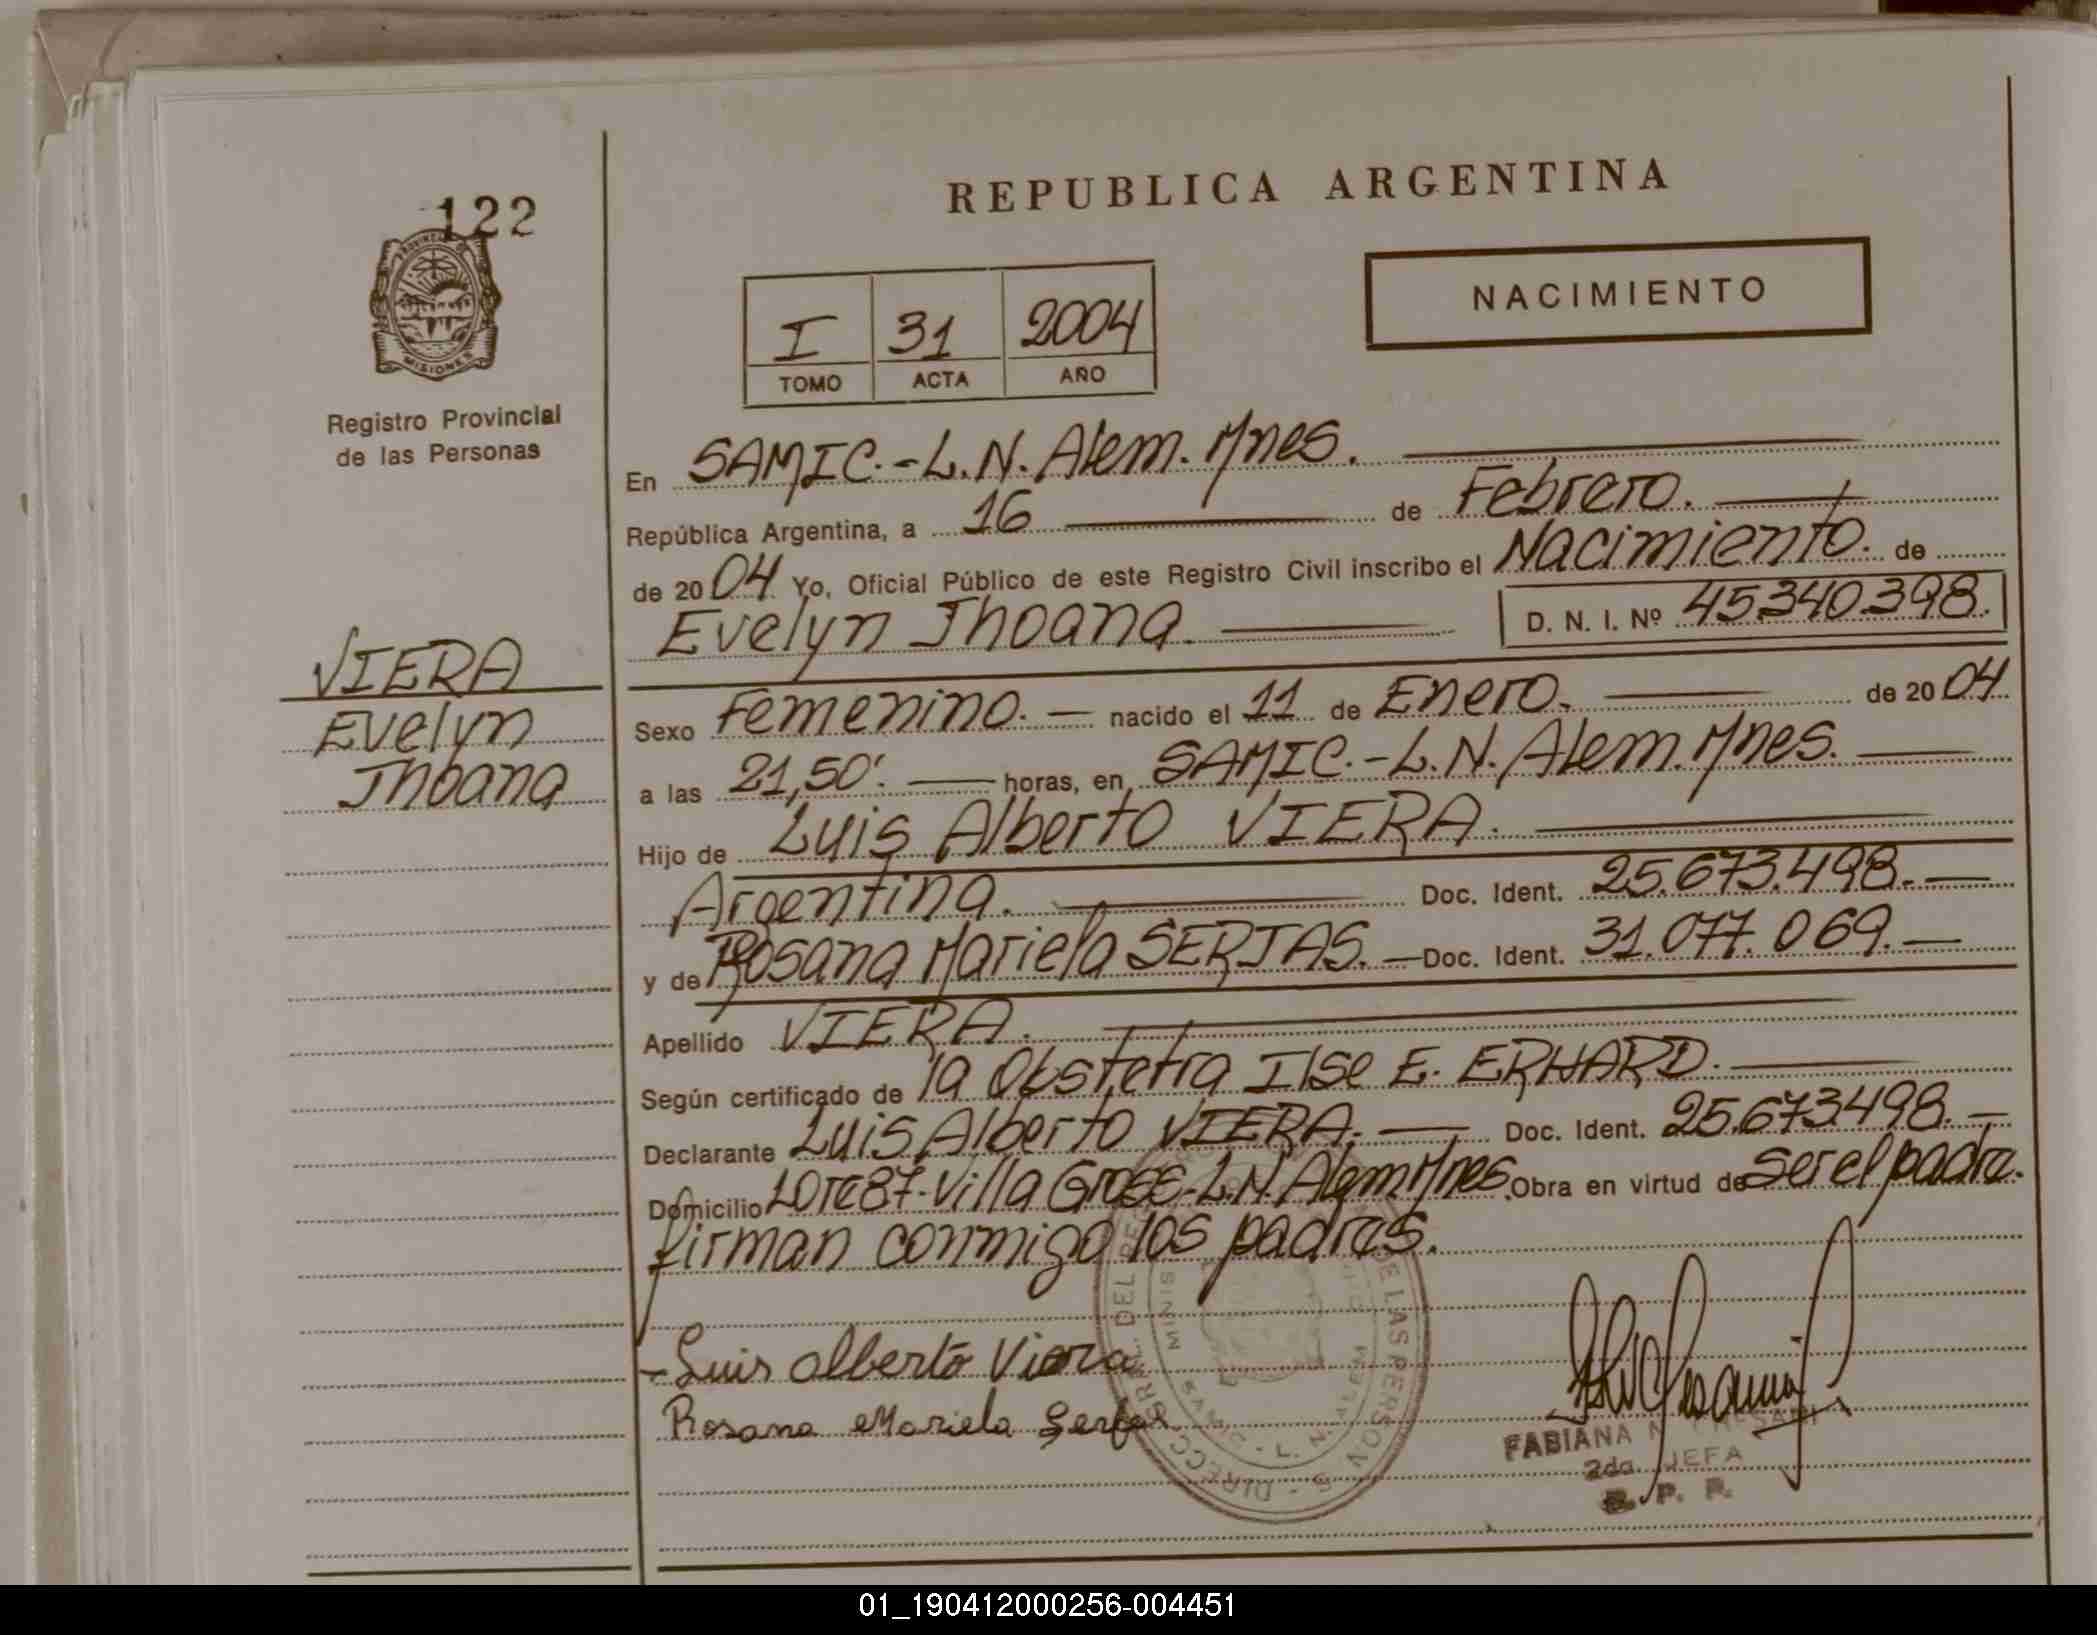 122
PROVINCIA DE
MISIONES
Registro Provincial
de las Personas
VIERA
Evelyn
Jhoana
REPUBLICA ARGENTINA
NACIMIENTO
I 31 2004
TOMO ACTA AÑO
En SAMIC.-L.N.Alem.Mnes.
República Argentina, a 16 de Febrero.
de 2004 Yo, Oficial Público de este Registro Civil inscribo el Nacimiento. de
Evelyn Jhoana. D. N. I. Nº 45.340.398.
Sexo Femenino. nacido el 11 de Enero. de 2004
a las 21,50'. horas, en SAMIC.-L.N.Alem.Mnes.
Hijo de Luis Alberto VIERA.
Argentina. Doc. Ident. 25.673.498.
y de Rosana Mariela SERJAS. Doc. Ident. 31.077.069.
Apellido VIERA.
Según certificado de la Obstetra Ilse E. ERHARD.
Declarante Luis Alberto VIERA. Doc. Ident. 25.673.498.
Domicilio Lote 87-Villa Grose-L.N.Alem Mnes. Obra en virtud de ser el padre.
firman conmigo los padres.
Luis Alberto Viera
Rosana Mariela
FABIANA
2da. JEFA
R. P. P.
01_190412000256-004451